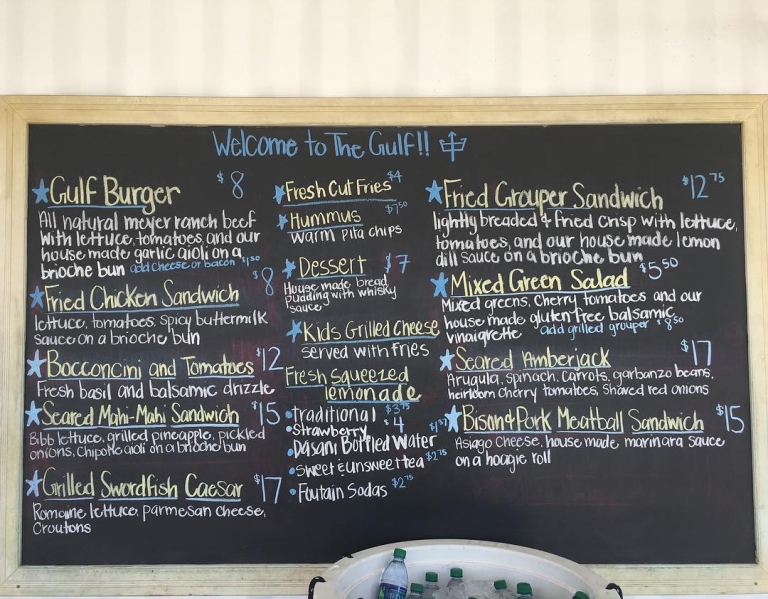 Welcome to The Gulf!!
Gulf Burger $8
All natural meyer ranch beef
with lettuce, tomatoes, and our
house made garlic aioli on a
brioche bun add cheese or bacon $1.50
Fried Chicken Sandwich $8
lettuce, tomatoes, spicy buttermilk
sauce on a brioche bun
Bocconcini and Tomatoes $12
Fresh basil and balsamic drizzle
Seared Mahi-Mahi Sandwich $15
Bibb lettuce, grilled pineapple, pickled
onions, Chipotle aioli on a brioche bun
Grilled Swordfish Caesar $17
Romaine lettuce, parmesan cheese,
Croutons
Fresh Cut Fries $4
Hummus $7.50
warm pita chips
Dessert $7
House made bread
pudding with whisky
sauce
Kids Grilled Cheese
served with fries
Fresh squeezed
lemonade
traditional $3.75
Strawberry $4
Dasani Bottled Water
sweet & unsweet tea $2.75
Foutain Sodas $2.75
Fried Grouper Sandwich $12.75
lightly breaded & fried crisp with lettuce,
tomatoes, and our house made lemon
dill sauce on a brioche bun
Mixed Green Salad $5.50
Mixed greens, Cherry tomatoes and our
house made gluten free balsamic
vinaigrette add grilled grouper $8.50
Seared Amberjack $17
Arugula, spinach, Carrots, garbanzo beans,
heirloom cherry tomatoes, Shaved red onions
Bison & Pork Meatball Sandwich $15
Asiago cheese, house made marinara sauce
on a hoagie roll